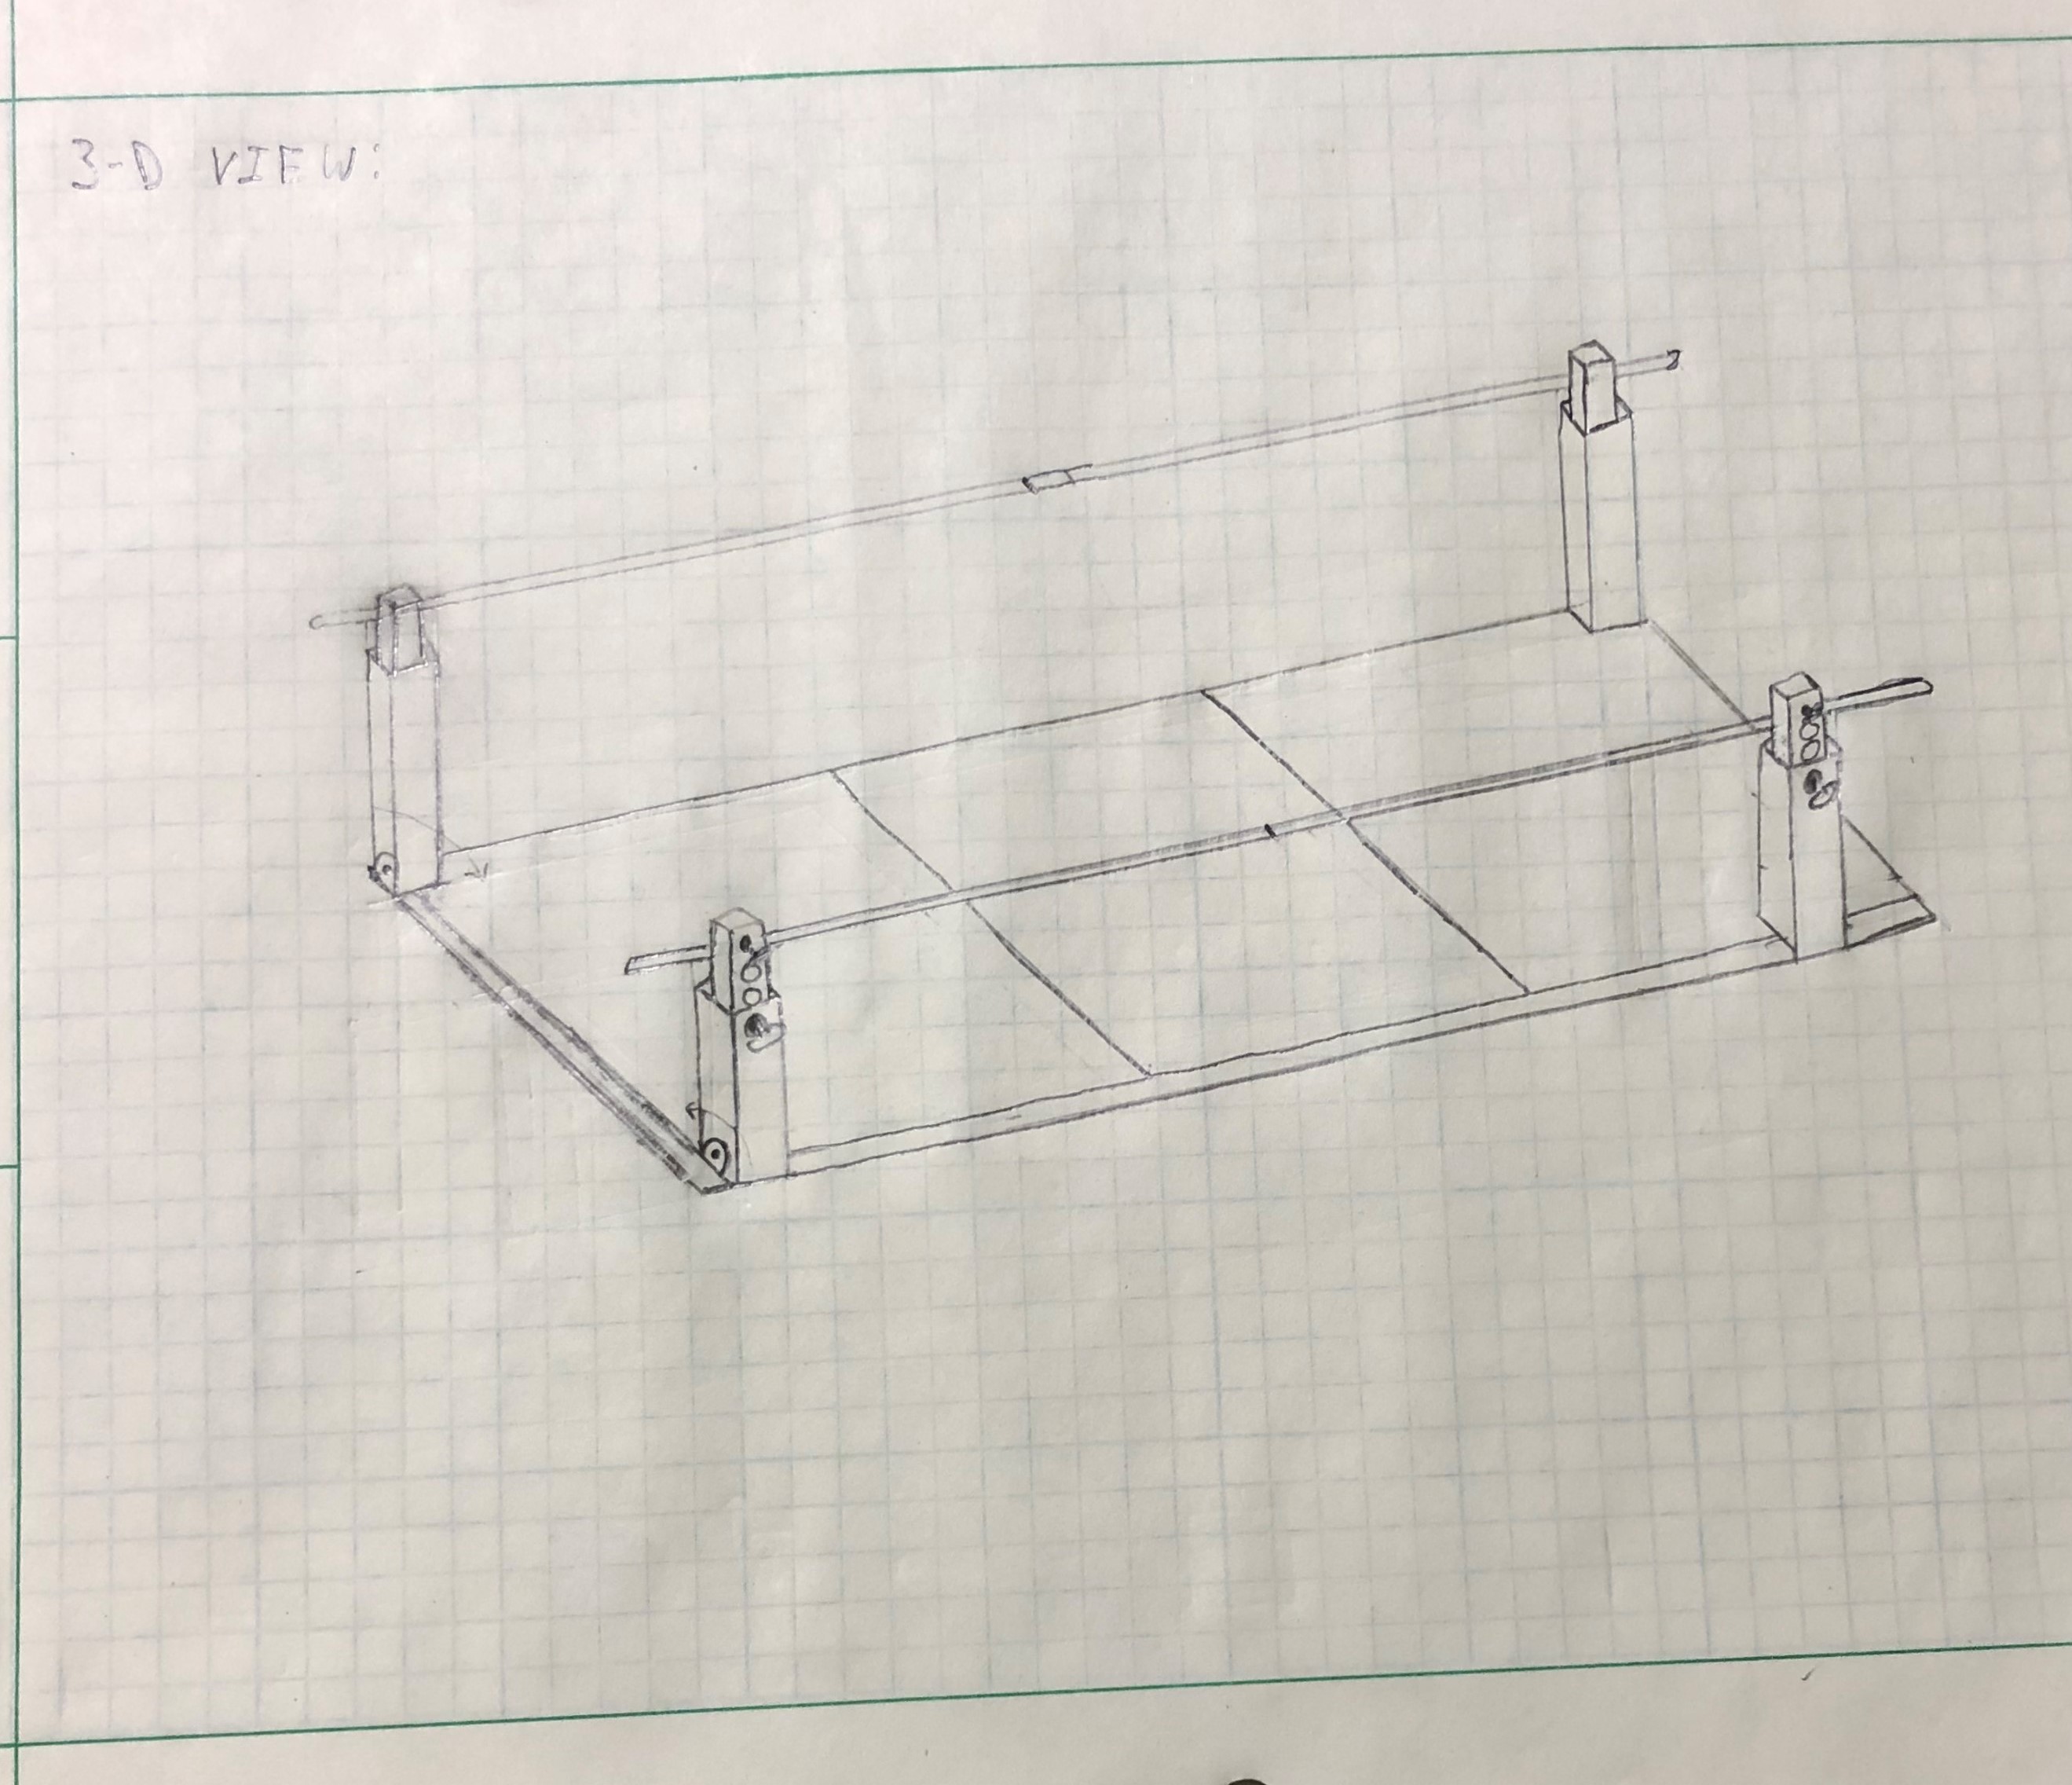 3-D VIEW: